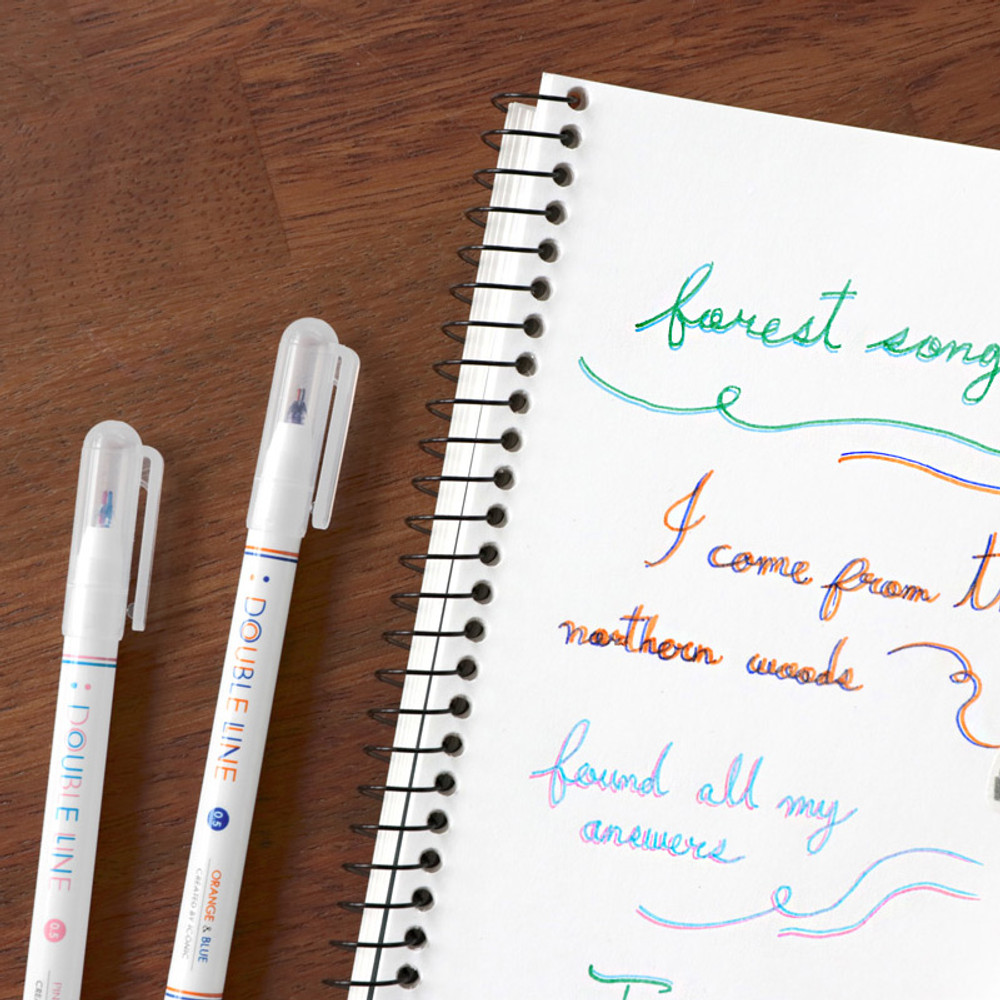 forest song
I come from
northern woods
found all my
answers
DOUBLE LINE
0.5
DOUBLE LINE
0.5
ORANGE & BLUE
CREATED BY ICONIC